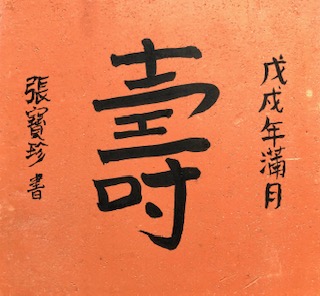 戊戌年滿月
壽
張寶珍書